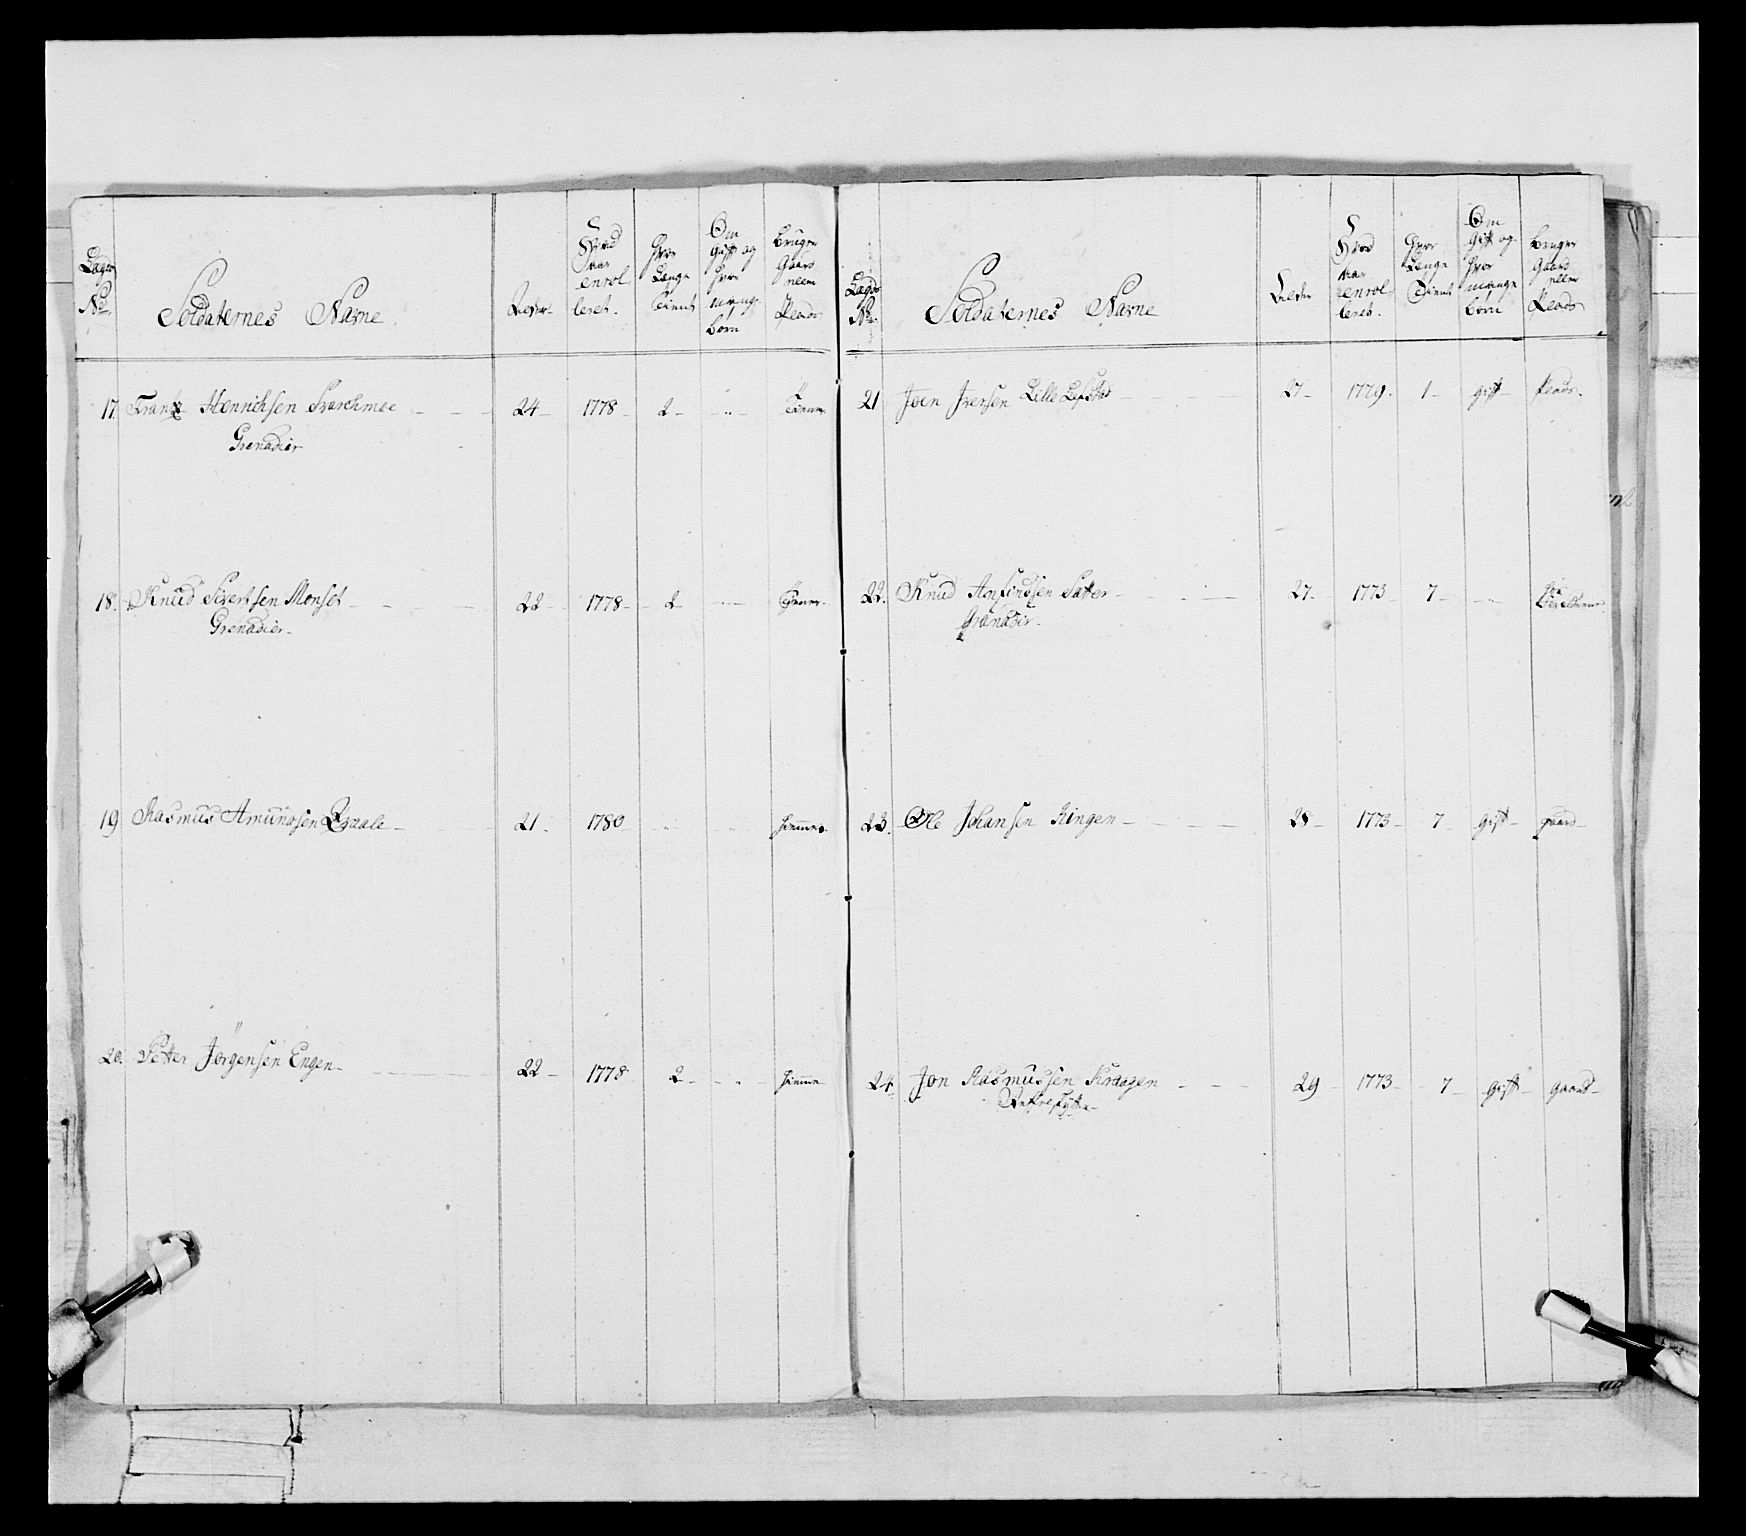 Lægds No. Soldaternes Navne. Alder. Hvad aar enrolleret. Hvor Længe Tient Om gift og Hvor mange børn Bruger Gaard eller Plads
17. Frantz Henrichsen 24 1778 2 Tiener.
Grenadier
18. Knud Sivertsen Monset 22 1778 2 Tiener.
Grenadier.
19 Rasmus Amundsen 21 1780 hiemme.
20. Petter Jörgensen Engen 22 1778 2 hiemme
Lægds No. Soldaternes Navne Alder Hvad aar enrolleret. Hvor Længe Tient Om Gift og Hvor mange børn Bruger Gaard eller Plads
21 Joen Iversen Lille 27 1779. 1 gift Plads.
22. Knud Sæter 27 1773 7
Grenadir.
23. Ole Johansen Ringen 28 1773 7 gift gaard
24. Jon Rasmussen Kraagen 29 1773 7 gift gaard